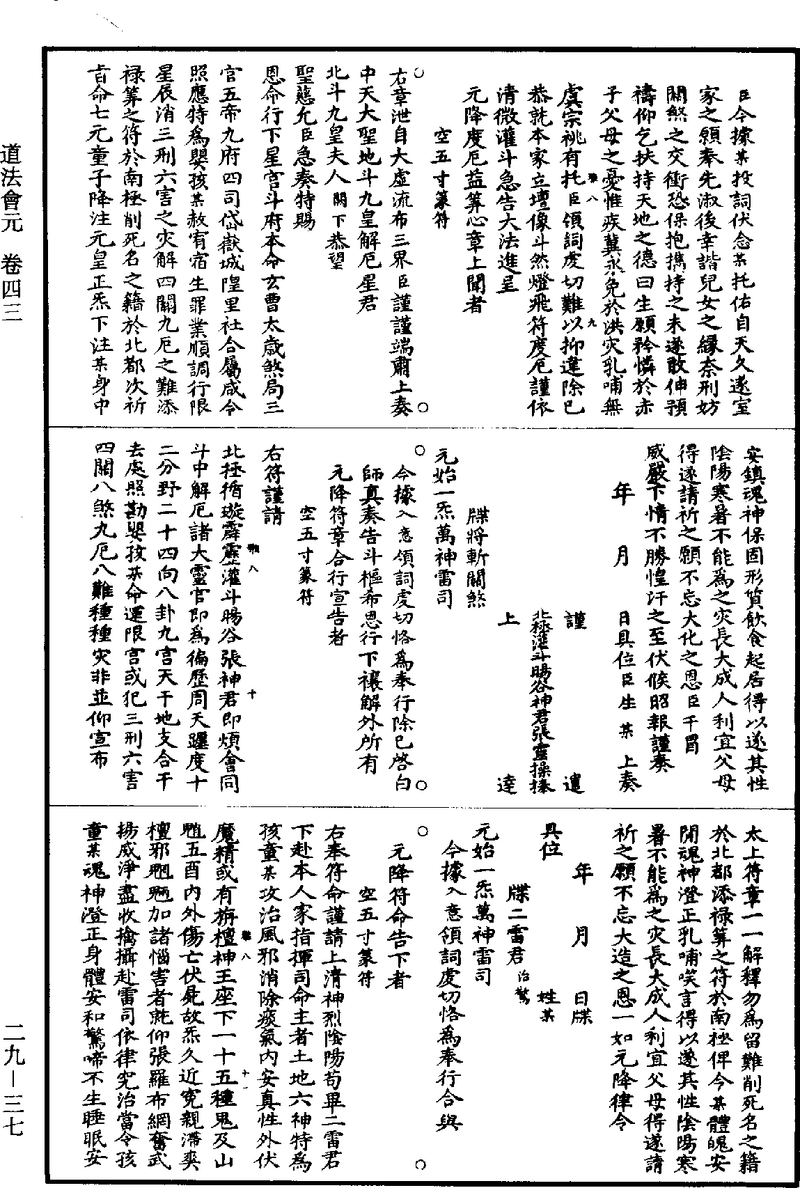 道法會元　卷四三
臣今據某投詞伏念某托佑自天久遂室
家之願奉先淑後幸諧兒女之緣奈刑妨
關煞之交衝恐保抱攜持之未遂敢伸預
禱仰乞扶持天地之德曰生願矜憐於赤
子父母之憂惟疾冀永免於洪灾乳哺無
虞宗祧有托臣領詞虔切難以抑違除已
恭就本家立壇像斗然燈飛符度厄謹依
清微灌斗急告大法進呈
元降度厄益筭心章上聞者
空五寸篆符
右章泄自大虛流布三界臣謹謹端肅上奏
中天大聖地斗九皇解厄星君
北斗九皇夫人闕下恭望
聖慈允臣急奏特賜
恩命行下星宫斗府本命玄曹太歲煞局三
官五帝九府四司岱嶽城隍里社合屬咸令
照應特爲嬰孩某赦宥宿生罪業順調行限
星辰消三刑六害之灾解四關九厄之難添
祿筭之符於南極削死名之籍於北都次祈
旨命七元童子降注元皇正炁下注某身中
安鎮魂神保固形質飲食起居得以遂其性
陰陽寒暑不能爲之灾長大成人利宜父母
得遂請祈之願不忘大化之恩臣干冒
威嚴下情不勝惶汗之至伏候昭報謹奏
年　月　日具位臣生某上奏
謹　遣
北極灌斗暘谷神君張靈操捧
上　達
牒將斬關煞
元始一炁萬神雷司
今據入意領詞虔切恪爲奉行除已啓白
師真奏告斗樞希恩行下禳解外所有
元降符章合行宣告者
空五寸篆符
右符謹請
北極循璇霹靂灌斗暘谷張神君即煩會同
斗中解厄諸大靈官即爲徧歷周天躔度十
二分野二十四向八卦九宫天干地支合干
去處照勘嬰孩某命運限宫或犯三刑六害
四關八煞九厄八難種種灾非並仰宣布
太上符章一一解釋勿爲留難削死名之籍
於北都添祿筭之符於南極俾今某體魄安
閒魂神澄正乳哺咲言得以遂其性陰陽寒
暑不能爲之灾長大成人利宜父母得遂請
祈之願不忘大造之恩一如元降律令
年　月　日牒
具位　姓某
牒二雷君治驚
元始一炁萬神雷司
今據入意領詞虔切恪爲奉行合與
元降符命告下者
空五寸篆符
右奉符命謹請上清神烈陰陽苟畢二雷君
下赴本人家指揮司命主者土地六神特爲
孩童某攻治風邪消除痰氣内安真性外伏
魔精或有旃檀神王座下一十五種鬼及山
魈五酉内外傷亡伏屍故炁久近冤親滯爽
檀邪魍魎加諸惱害者就仰張羅布網奮武
揚威淨盡收擒攝赴雷司依律究治當令孩
童某魂神澄正身體安和驚啼不生睡眠安
二九—三七